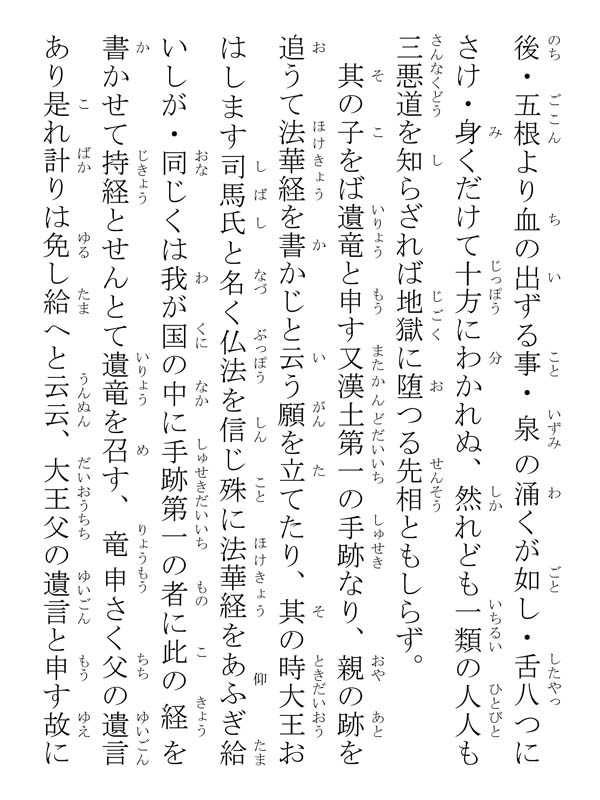 後・五根より血の出ずる事・泉の涌くが如し・舌八つに
さけ・身くだけて十方にわかれぬ、然れども一類の人人も
三悪道を知らざれば地獄に堕つる先相ともしらず。
其の子をば遺竜と申す又漢土第一の手跡なり、親の跡を
追うて法華経を書かじと云う願を立てたり、其の時大王お
はします司馬氏と名く仏法を信じ殊に法華経をあふぎ給
いしが・同じくは我が国の中に手跡第一の者に此の経を
書かせて持経とせんとて遺竜を召す、竜申さく父の遺言
あり是れ計りは免し給へと云云、大王父の遺言と申す故に